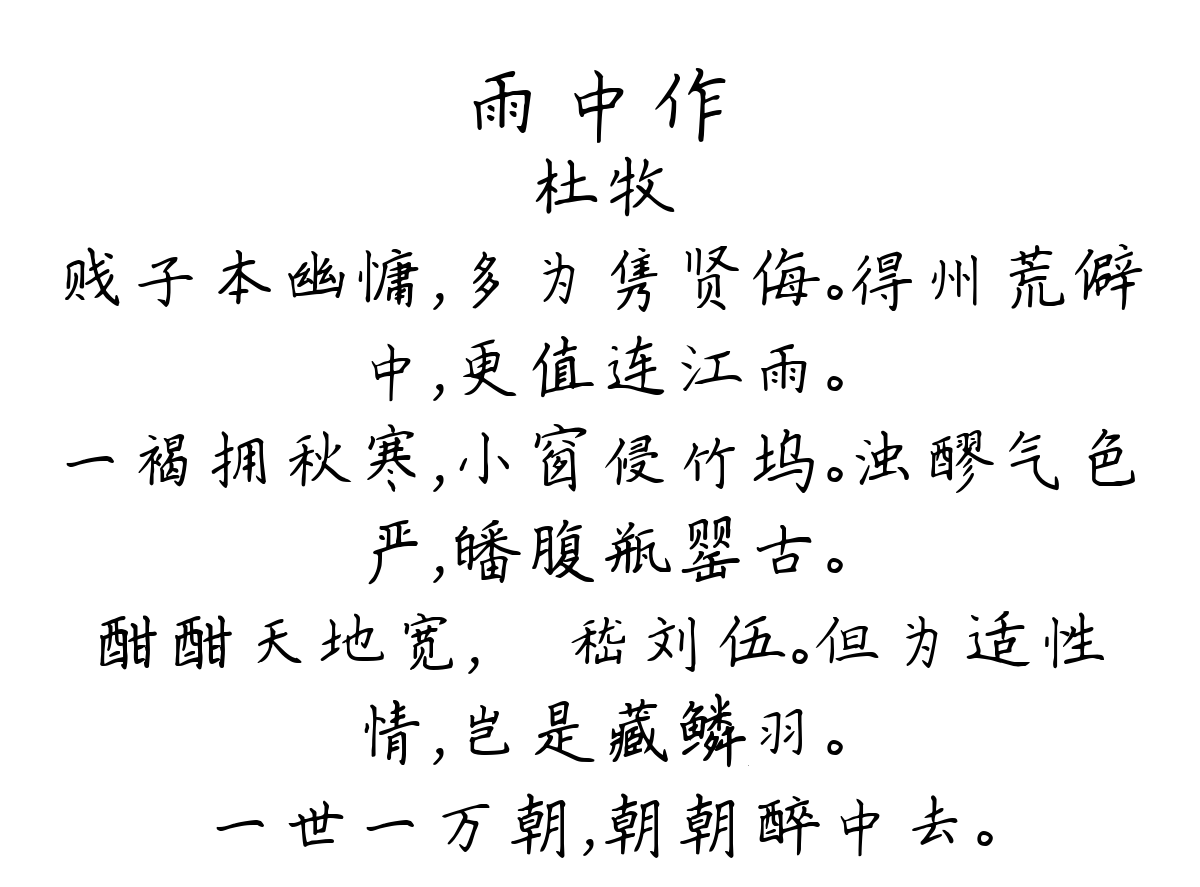 雨中作
杜牧
贱子本幽慵,多为隽贤侮。得州荒僻
中,更值连江雨。
一褐拥秋寒,小窗侵竹坞。浊醪气色
严,皤腹瓶罂古。
酣酣天地宽, 嵇刘伍。但为适性
情,岂是藏鳞羽。
一世一万朝,朝朝醉中去。